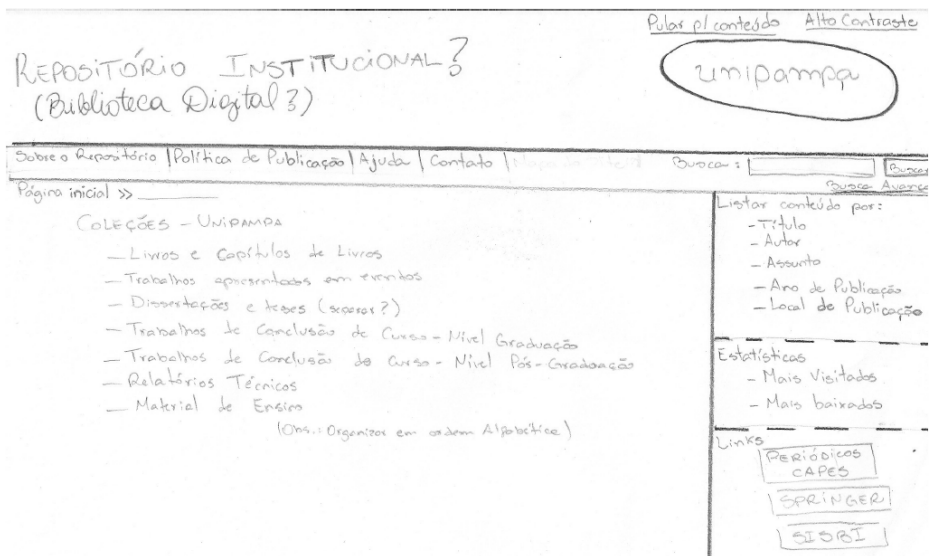 Pular p/ conteúdo   Alto Contraste
REPOSITÓRIO INSTITUCIONAL?
(Biblioteca Digital?)
unipampa
Sobre o Repositório | Política de Publicação | Ajuda | Contato |
Busca: Buscar
Busca Avança
Página inicial >>
COLEÇÕES - UNIPAMPA
- Livros e Capítulos de Livros
- Trabalhos apresentados em eventos
- Dissertações e teses (separar?)
- Trabalhos de Conclusão de Curso - Nível Graduação
- Trabalhos de Conclusão de Curso - Nível Pós-Graduação
- Relatórios Técnicos
- Material de Ensino
(Obs.: Organizar em ordem Alfabética)
Listar conteúdo por:
- Título
- Autor
- Assunto
- Ano de Publicação
- Local de Publicação
Estatísticas
- Mais Visitados
- Mais baixados
Links
PERIÓDICOS
CAPES
SPRINGER
SISBI